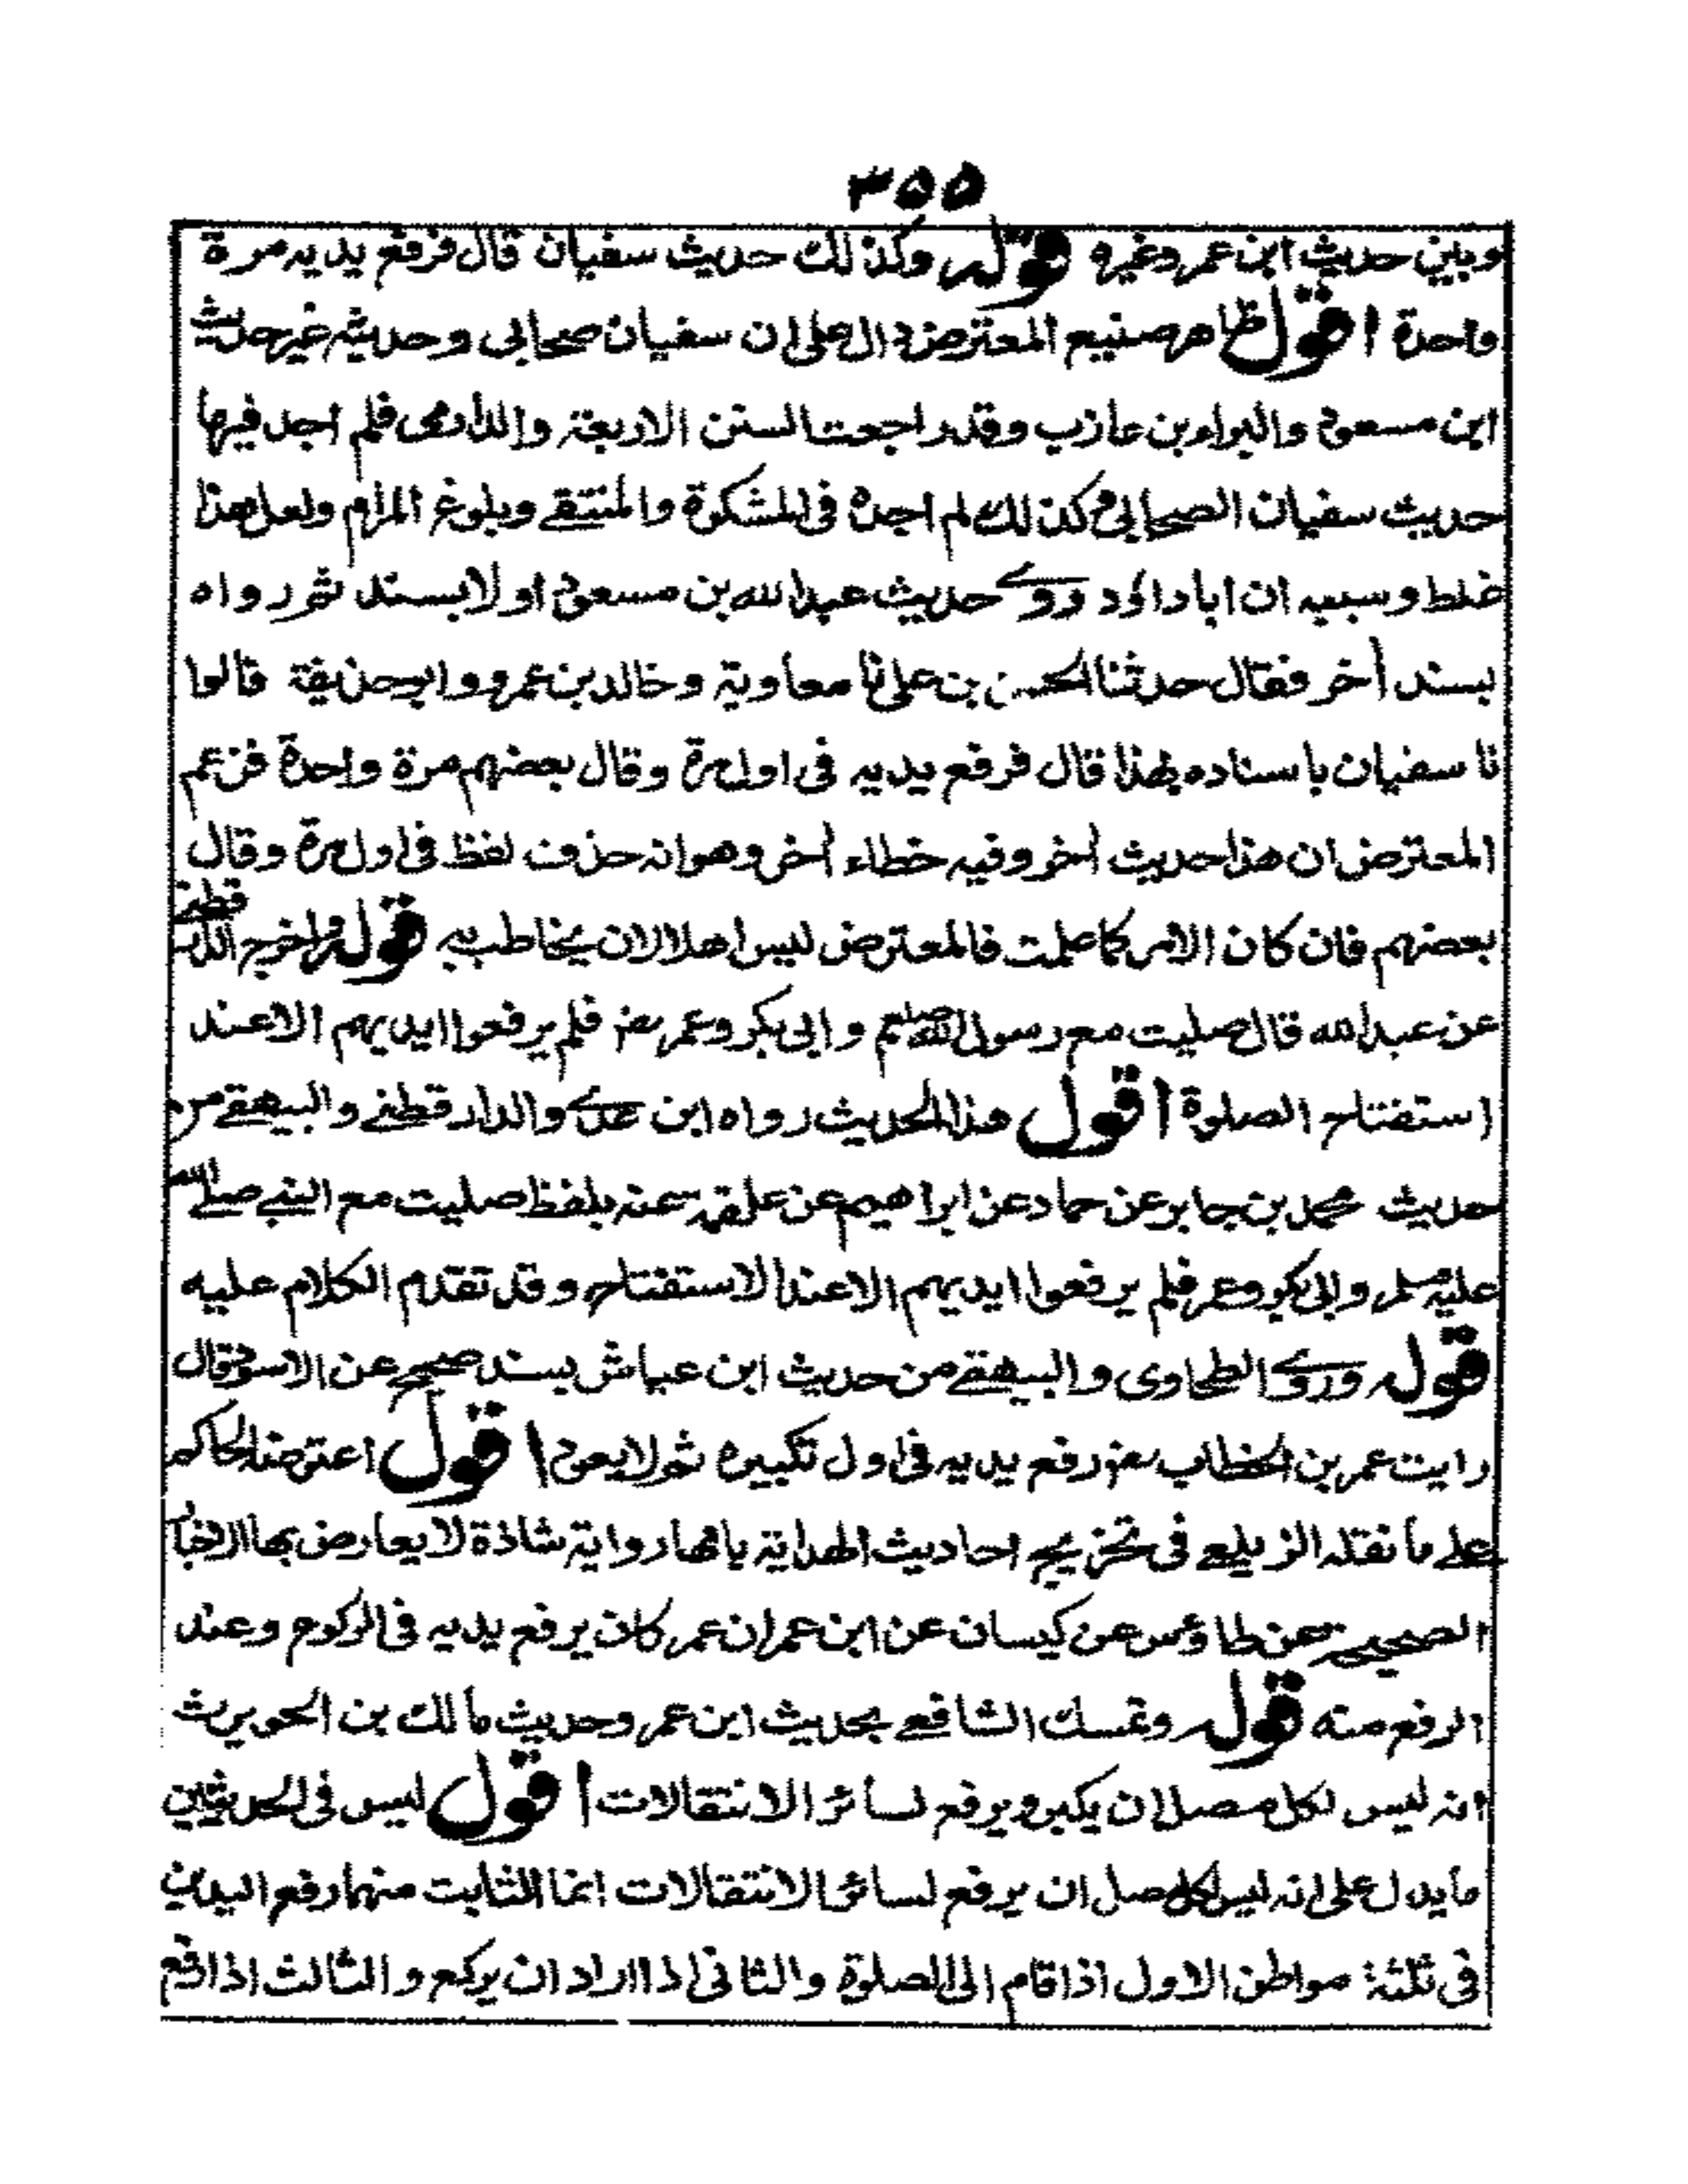 ٣٥٥
وبين حديث ابن عمر وغيره قوله وكذلك حديث سفيان قال فرفع يديه مرة
واحدة اقول ظاهر صنيع المعترض دال على ان سفيان صحابي وحديثه غير حديث
ابن مسعود والبراء بن عازب وقد راجعت السنن الاربعة والدارمي فلم اجد فيها
حديث سفيان الصحابي وكذلك لم اجده في المشكوة والمنتقى وبلوغ المرام ولعل هذا
غلط وسببه ان ابا داؤد روى حديث عبد الله بن مسعود اولا بسند ثم رواه
بسند أخر فقال حدثنا الحسن بن على نا معاوية وخالد بن عمرو وابو حذيفة قالوا
نا سفيان باسناده بهذا قال فرفع يديه في اول مرة وقال بعضهم مرة واحدة فزعم
المعترض ان هذا حديث أخر وفيه خطاء أخر وهو انه حذف لفظ في اول مرة وقال
بعضهم فان كان الامر كما علمت فالمعترض ليس اهلا لان يخاطب به قوله واخرج الدارقطنے
عن عبد الله قال صليت مع رسول الله صلعم وابي بكر وعمر رض فلم يرفعوا ايديهم الا عند
استفتاح الصلوة اقول هذا الحديث رواه ابن عدے والدارقطنے والبيهقے من
حديث محمد بن جابر عن حماد عن ابراهيم عن علقمة عنه بلفظ صليت مع النبے صلے الله
عليه وسلم وابي بكر وعمر فلم يرفعوا ايديهم الا عند الاستفتاح وقد تقدم الكلام عليه
قوله وروے الطحاوى والبيهقے من حديث ابن عياش بسند صحيح عن الاسود قال
رايت عمر بن الخطاب رض رفع يديه في اول تكبيره ثم لا يعود اقول اعترضه الحاكم
علے ما نقله الزيلعے في تخريج احاديث الهداية بانها رواية شاذة لا يعارض بها الاخبار
الصحيحة عن طاؤس عن كيسان عن ابن عمر ان عمر كان يرفع يديه في الركوع وعند
الرفع منه قوله وتمسك الشافعے بحديث ابن عمر وحديث مالك بن الحويرث
انه ليس لكل مصل ان يكبر ويرفع لسائر الانتقالات اقول ليس في الحديثين
ما يدل على انه ليس لكل مصل ان يرفع لسائر الانتقالات انما الثابت منهما رفع اليدين
في ثلثة مواطن الاول اذا قام الى الصلوة والثاني اذا اراد ان يركع والثالث اذا رفع